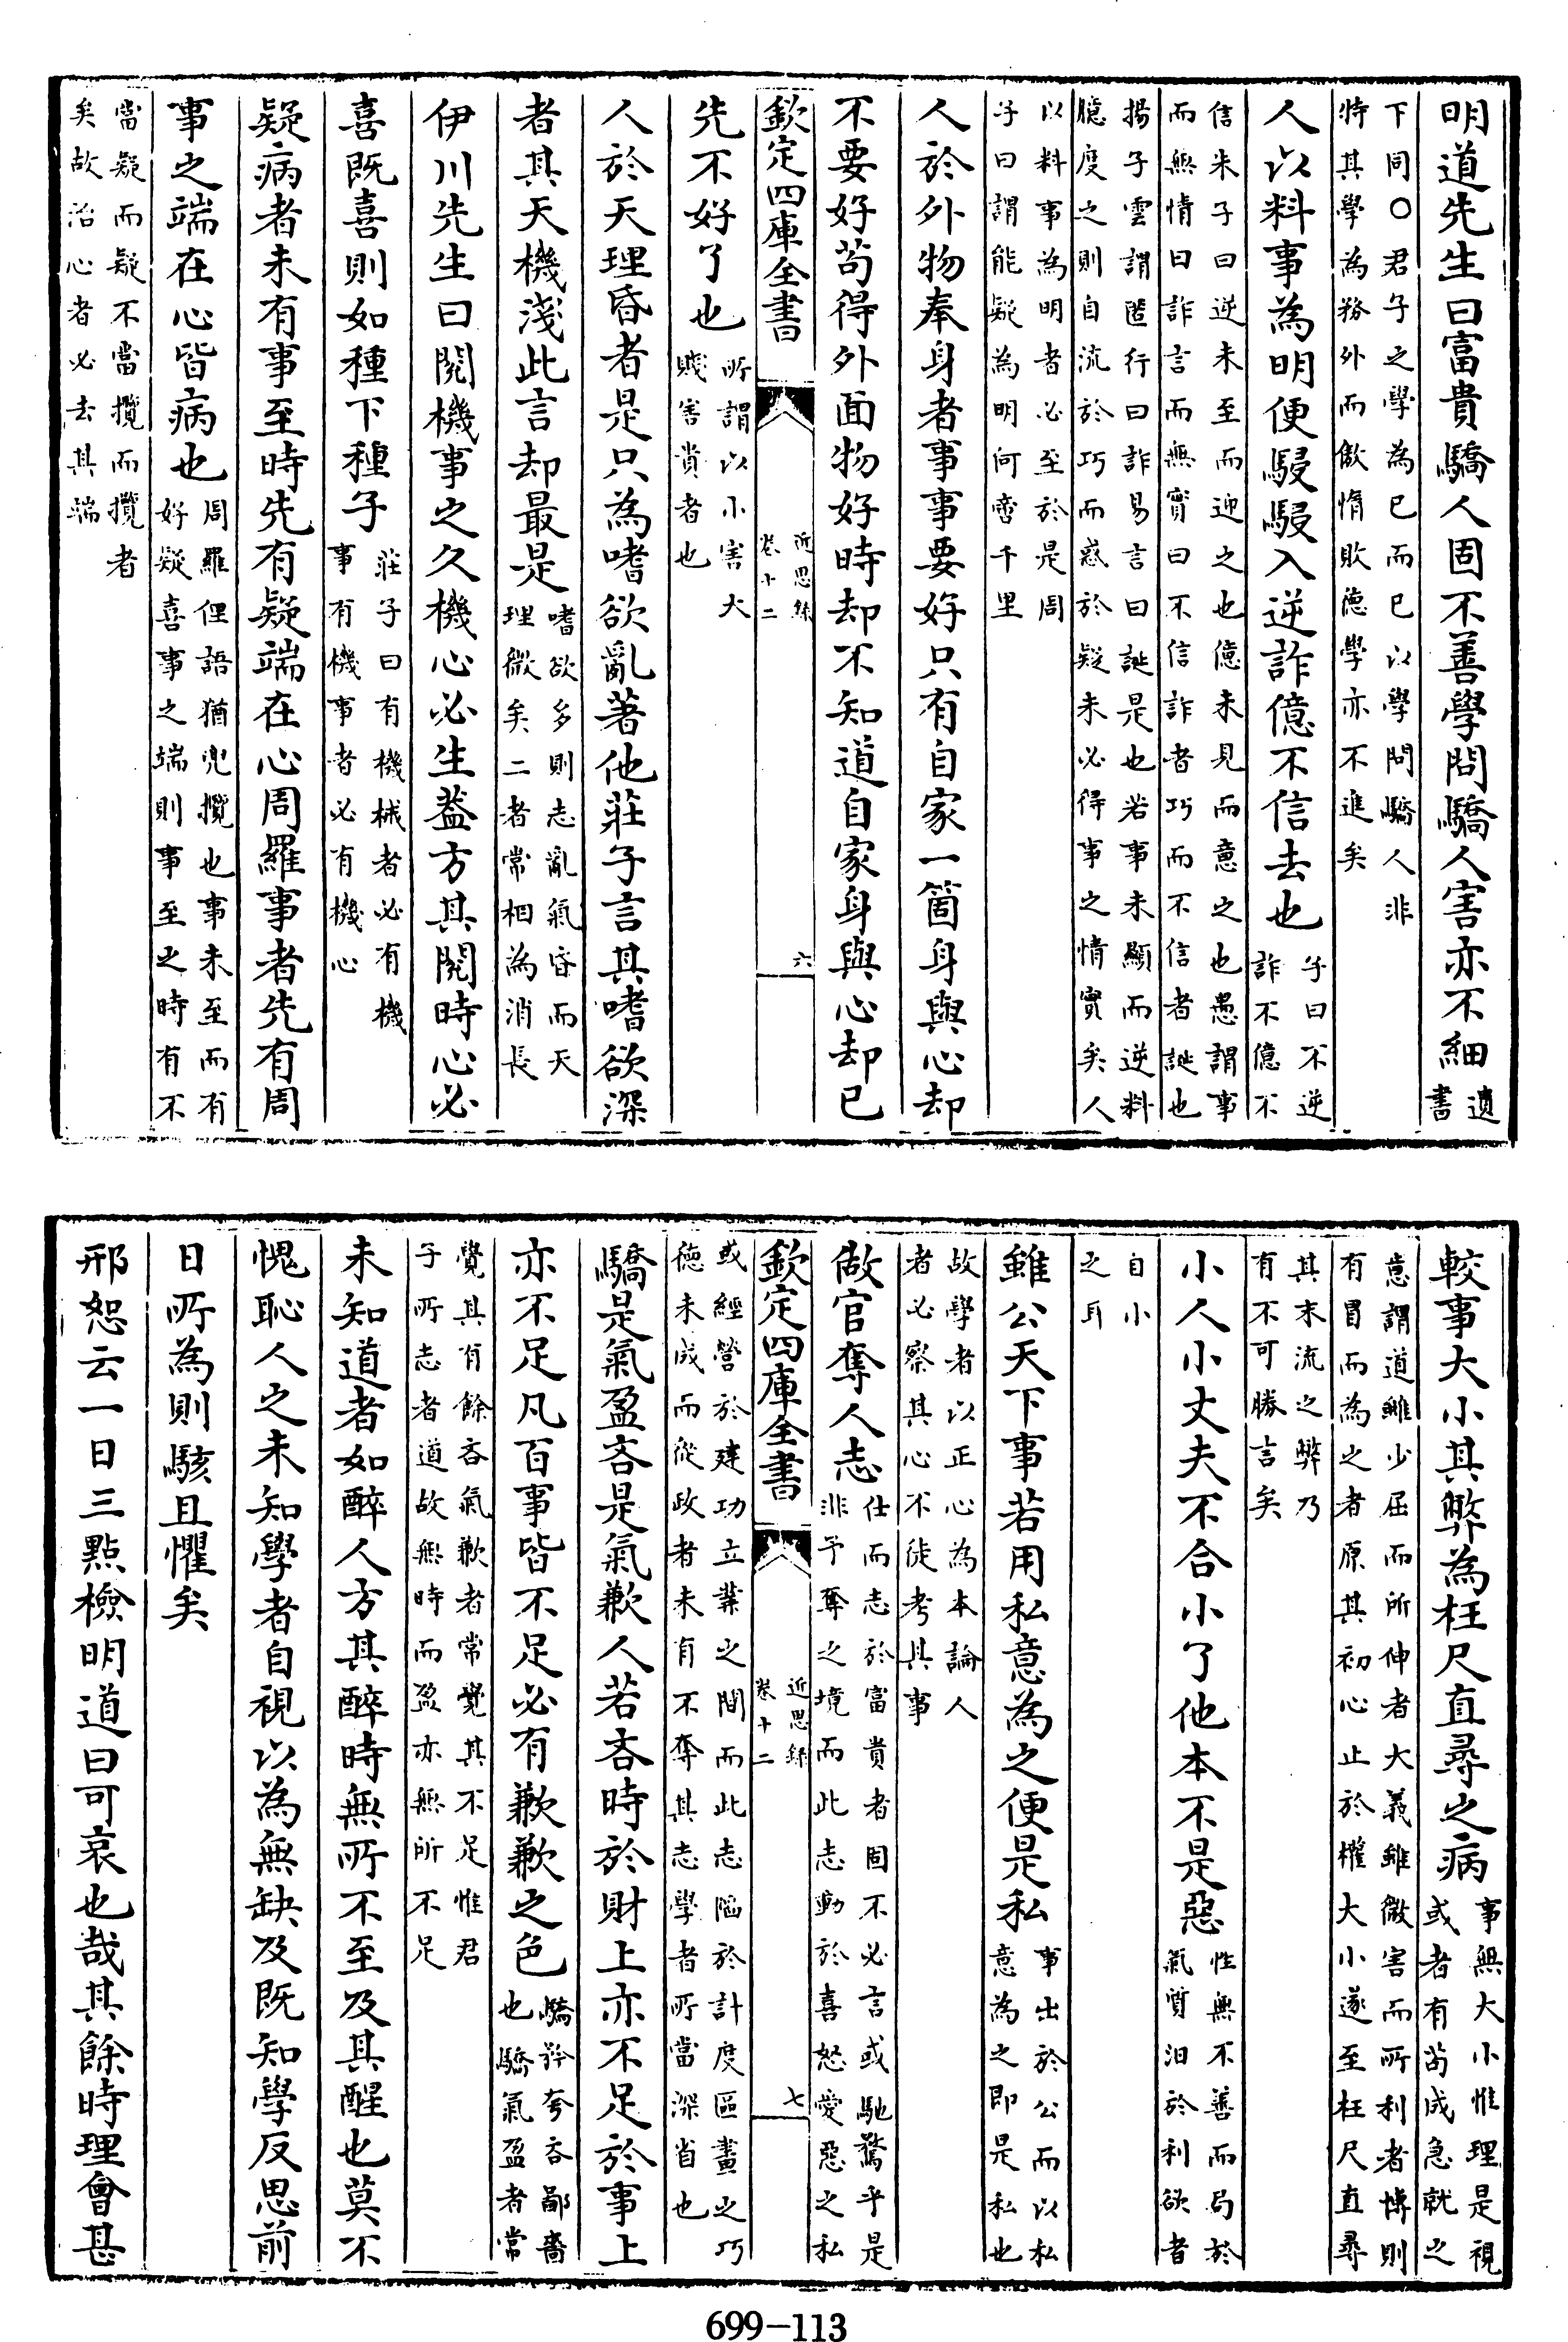 明道先生曰富貴驕人固不善學問驕人害亦不細遺書
下同○君子之學為己而已以學問驕人非
特其學為務外而傲惰敗德學亦不進矣
人以料事為明便駸駸入逆詐億不信去也子曰不逆詐不億不
信朱子曰逆未至而迎之也億未見而意之也愚謂事
而無情曰詐言而無實曰不信詐者巧而不信者誕也
揚子雲謂匿行曰詐易言曰誕是也若事未顯而逆料
臆度之則自流於巧而惑於疑未必得事之情實矣人
以料事為明者必至於是周
子曰謂能疑為明何啻千里
人於外物奉身者事事要好只有自家一箇身與心却
不要好苟得外面物好時却不知道自家身與心却已
欽定四庫全書
近思錄
卷十二
六
先不好了也所謂以小害大賤害貴者也
人於天理昏者是只為嗜欲亂著他莊子言其嗜欲深
者其天機淺此言却最是嗜欲多則志亂氣昏而天理微矣二者常相為消長
伊川先生曰閱機事之久機心必生蓋方其閱時心必
喜既喜則如種下種子莊子曰有機械者必有機事有機事者必有機心
疑病者未有事至時先有疑端在心周羅事者先有周
事之端在心皆病也周羅俚語猶兜攬也事未至而有好疑喜事之端則事至之時有不
當疑而疑不當攬而攬者
矣故治心者必去其端
較事大小其弊為枉尺直尋之病事無大小惟理是視或者有苟成急就之
意謂道雖少屈而所伸者大義雖微害而所利者博則
有冒而為之者原其初心止於權大小遂至枉尺直尋
其末流之弊乃
有不可勝言矣
小人小丈夫不合小了他本不是惡性無不善而局於氣質汨於利欲者
自小
之耳
雖公天下事若用私意為之便是私事出於公而以私意為之即是私也
故學者以正心為本論人
者必察其心不徒考其事
做官奪人志仕而志於富貴者固不必言或馳騖乎是非予奪之境而此志動於喜怒愛惡之私
欽定四庫全書
近思錄
卷十二
七
或經營於建功立業之間而此志陷於計度區畫之巧
德未成而從政者未有不奪其志學者所當深省也
驕是氣盈吝是氣歉人若吝時於財上亦不足於事上
亦不足凡百事皆不足必有歉歉之色驕矜夸吝鄙嗇也驕氣盈者常
覺其有餘吝氣歉者常覺其不足惟君
子所志者道故無時而盈亦無所不足
未知道者如醉人方其醉時無所不至及其醒也莫不
愧恥人之未知學者自視以為無缺及既知學反思前
日所為則駭且懼矣
邢恕云一日三點檢明道曰可哀也哉其餘時理會甚
699-113